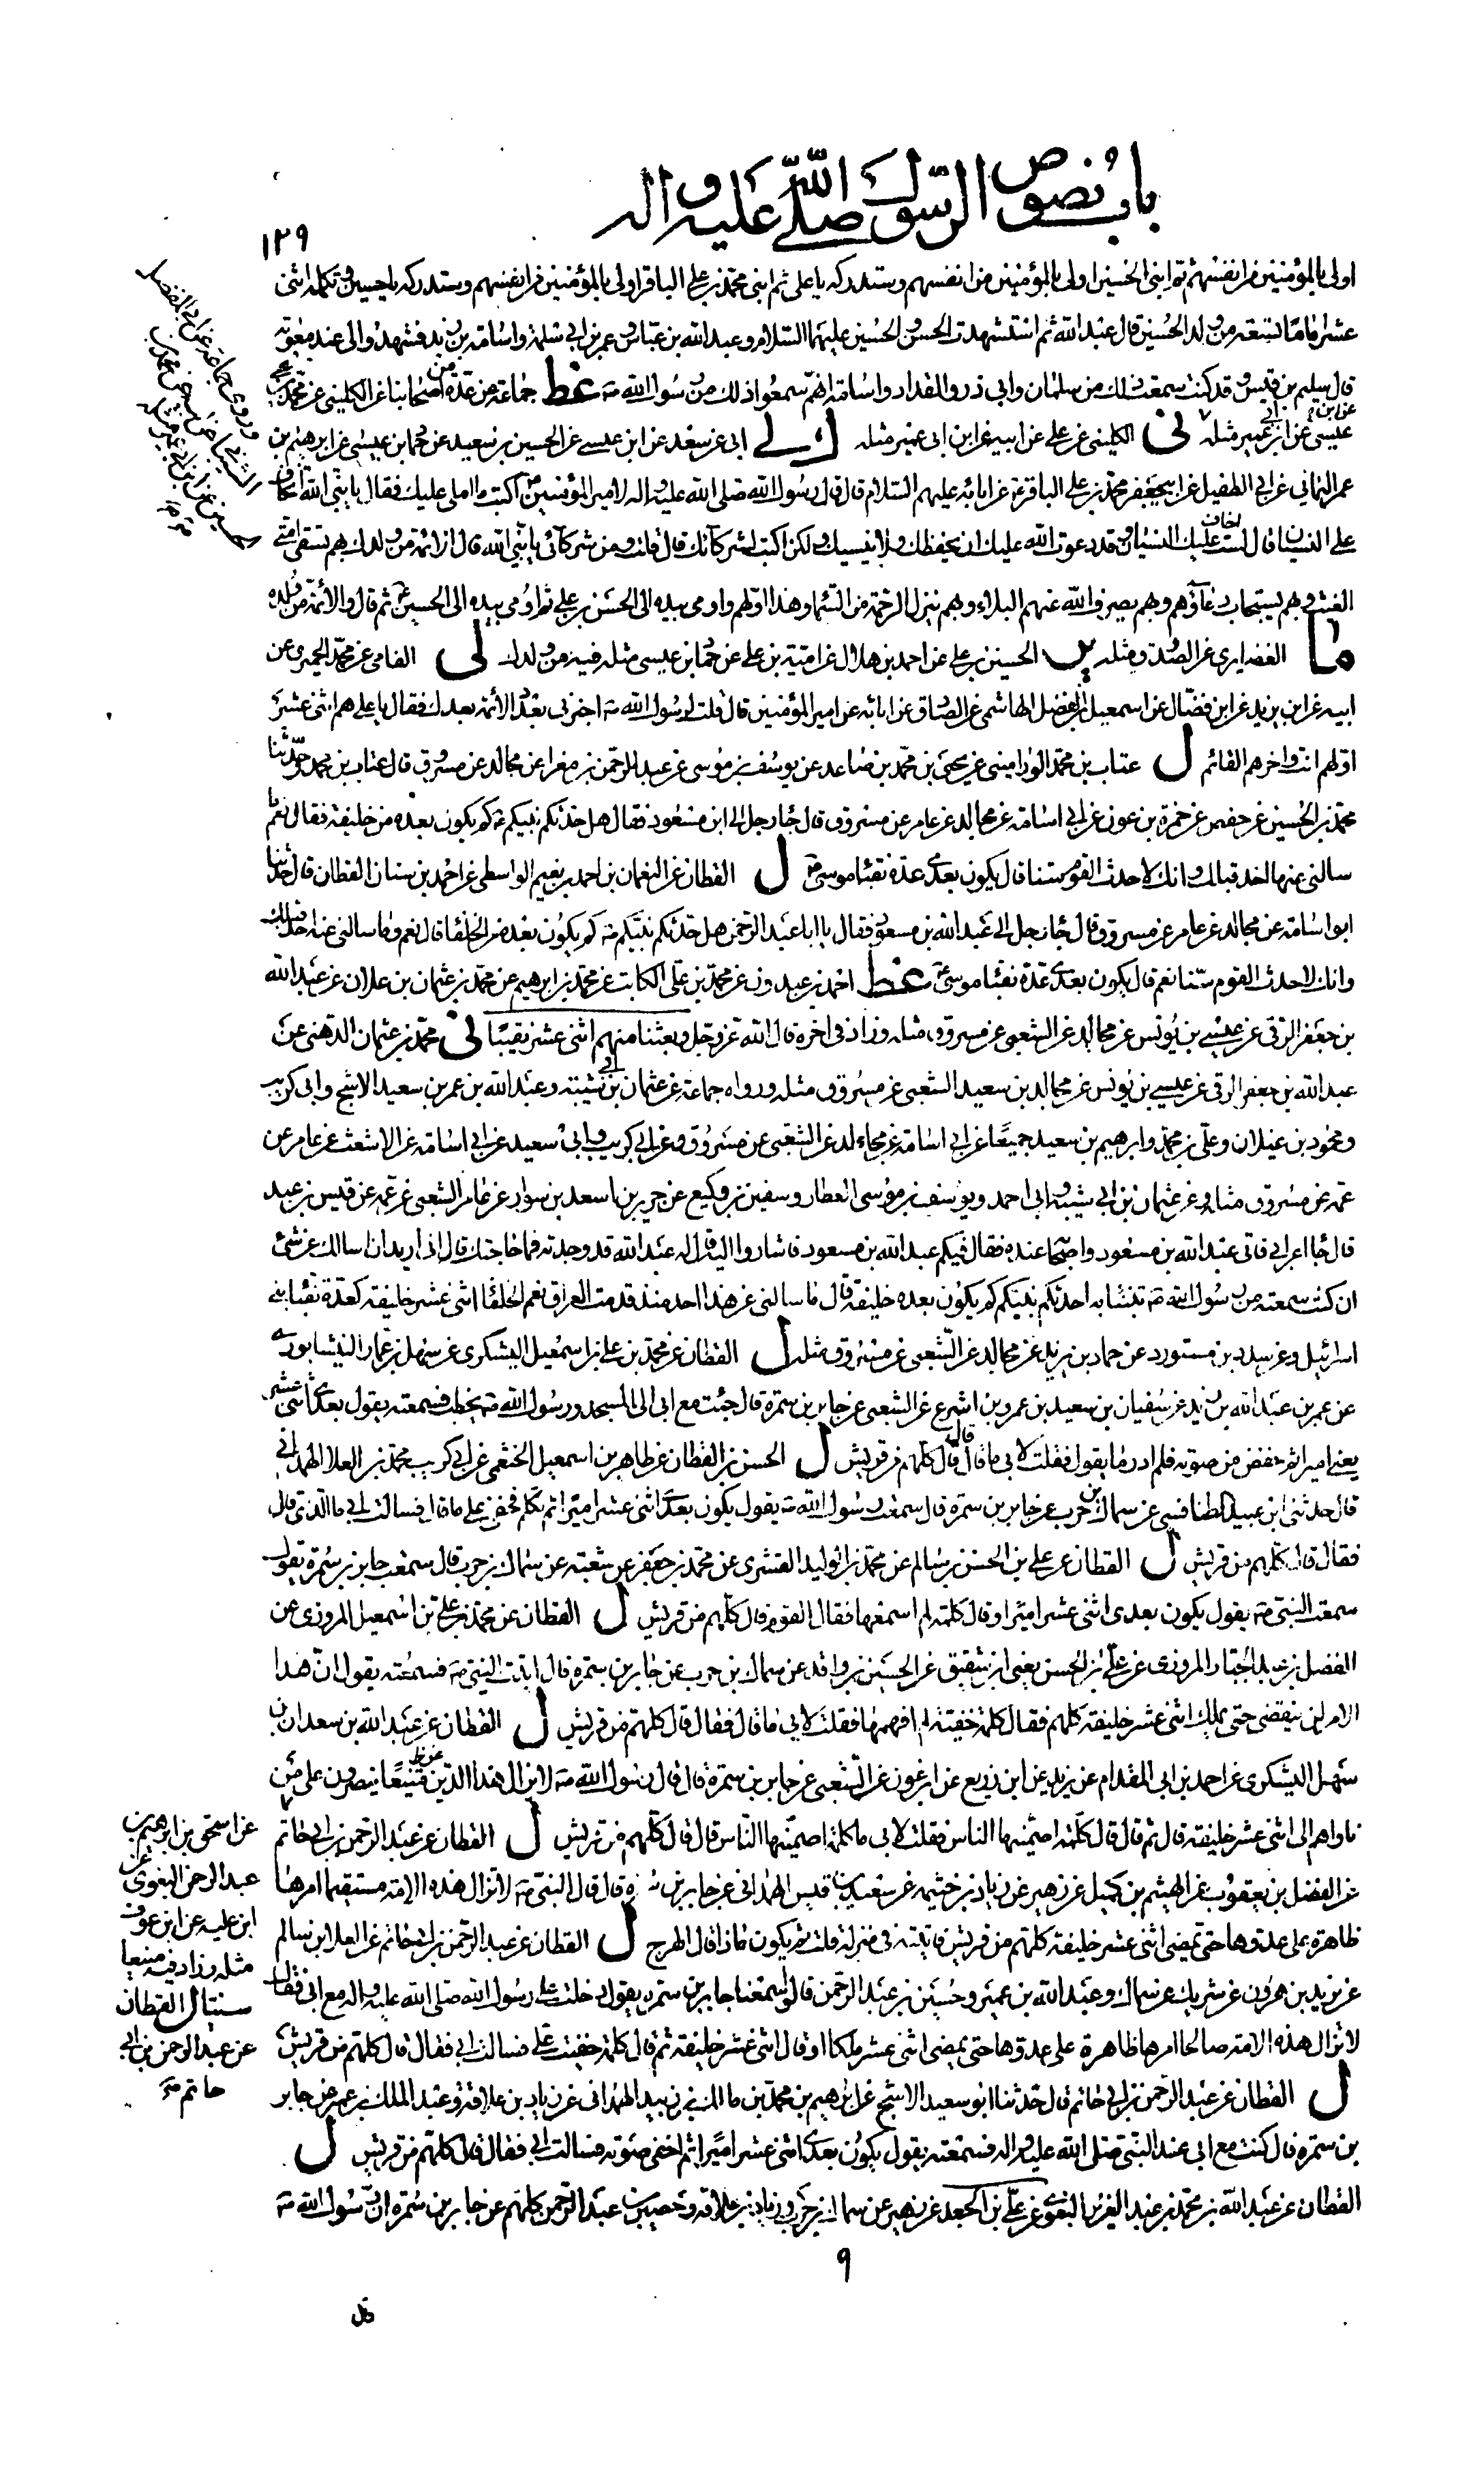 باب نصوص الرسول صلى الله عليه واله
١٢٩
اولى بالمؤمنين من انفسهم ثم ابنى الحسين اولى بالمؤمنين من انفسهم وستدركه يا على ثم ابنى محمد بن على الباقر اولى بالمؤمنين من انفسهم وستدركه يا حسين وتكمله اثنى
عشر اماما تسعة من ولد الحسين قال عبد الله ثم استشهدت الحسن والحسين عليهما السلام وعبد الله بن عباس وعمر بن ابى سلمة واسامة بن زيد فشهدوا لى عند معوية
قال سليم بن قيس وقد كنت سمعت ذلك من سلمان وابى ذر والمقداد واسامة انهم سمعوا ذلك من رسول الله ص غط جماعة من عدة من اصحابنا عن الكلينى عن محمد بن يحيى
عيسى عن ابن ابى عمير مثله نى الكلينى عن على عن ابيه عن ابن ابى عمير مثله ل لى ابى عن سعد عن ابن عيسى عن الحسين بن سعيد عن حماد بن عيسى عن ابرهيم بن
عمر اليمانى عن ابى الطفيل عن ابيجعفر محمد بن على الباقر عن ابائه عليهم السلام قال قال رسول الله صلى الله عليه واله لامير المؤمنين ع اكتب ما املى عليك فقال يا نبى الله اتخاف
على النسيان قال لست اخاف عليك النسيان وقد دعوت الله عليك ان يحفظك ولا ينسيك ولكن اكتب لشركائك قال قلت ومن شركائى يا نبى الله قال الائمة من ولدك بهم تسقى امتى
الغيث وبهم يستجاب دعاؤهم وبهم يصرف الله عنهم البلاء وبهم ينزل الرحمة من السماء وهذا اولهم واومى بيده الى الحسن بن على ثم اومى بيده الى الحسين ع ثم قال والائمة من ولده
ما الغضايرى عن الصدوق مثله ير الحسن بن على عن احمد بن هلال عن امية بن على عن حماد بن عيسى مثله فيه من ولدك لى الفامى عن محمد الحميرى عن
ابيه عن ابن يزيد عن ابن فضال عن اسمعيل بن الفضل الهاشمى عن الصادق عن ابائه عن امير المؤمنين قال قلت لرسول الله ص اخبرنى بعدد الائمة بعدك فقال يا على هم اثنى عشر
اولهم انت واخرهم القائم ل عتاب بن محمد الورامينى عن يحيى بن محمد بن صاعد عن يوسف بن موسى عن عبد الرحمن بن مغرا عن مجالد عن مسروق قال عتاب بن محمد وحدثنا
محمد بن الحسين عن حفص عن حمزة بن عون عن ابى اسامة عن مجالد عن عامر عن مسروق قال جاء رجل الى ابن مسعود فقال هل حدثكم نبيكم ص كم يكون بعده من خليفة فقال نعم ما
سالنى عنها احد قبلك وانك لاحدث القوم سنا قال يكون بعدى عدة نقباء موسى ع ل القطان عن النعمان بن احمد بن نعيم الواسطى عن احمد بن سنان القطان قال حدثنا
ابو اسامة عن مجالد عن عامر عن مسروق قال جاء رجل الى عبد الله بن مسعود فقال يا ابا عبد الرحمن هل حدثكم نبيكم ص كم يكون بعده من الخلفا قال نعم وما سالنى عنه احد قبلك
وانك لاحدث القوم سنا نعم قال يكون بعدى عدة نقباء موسى ع غط احمد بن عبدون عن محمد بن على الكاتب عن محمد بن ابرهيم عن محمد بن عثمان بن علان عن عبد الله
بن جعفر الرقى عن عيسى بن يونس عن مجالد عن الشعبى عن مسروق مثله وزاد فى اخره قال الله عز وجل وبعثنا منهم اثنى عشر نقيبا نى محمد بن عثمان الدهنى عن
عبد الله بن جعفر الرقى عن عيسى بن يونس عن مجالد بن سعيد الشعبى عن مسروق مثله ورواه جماعة عن عثمان بن ابى شيبة وعبد الله بن عمر بن سعيد الاشج وابى كريب
ومحمود بن غيلان وعلى بن محمد وابرهيم بن سعيد جميعا عن ابى اسامة عن مجالد عن الشعبى عن مسروق وعن ابى كريب وابى سعيد عن ابى اسامة عن الاشعث عن عامر عن
عمه عن مسروق مثله وعن عثمان بن ابى شيبة وابى احمد ويوسف بن موسى العطار وسفين بن وكيع عن جرير بن اسعد بن سوار عن عامر الشعبى عن عمه عن قيس بن عبد
قال جاء اعرابى فاتى عبد الله بن مسعود واصحابه عنده فقال فيكم عبد الله بن مسعود فاشاروا اليه قال له عبد الله قد وجدته فما حاجتك قال انى اريد ان اسالك عن شئ
ان كنت سمعته من رسول الله ص فنبئنا به احدثكم نبيكم كم يكون بعده خليفة قال ما سالنى عن هذا احد منذ قدمت العراق نعم الخلفا اثنى عشر خليفة كعدة نقباء بنى
اسرائيل وعن مسدد بن مستورد عن حماد بن يزيد عن مجالد عن الشعبى عن مسروق مثله ل القطان عن محمد بن على بن اسمعيل اليشكرى عن سهل بن عمار النيشابورى
عن عمر بن عبد الله بن زيد عن سفيان بن سعيد بن عمرو بن اشرع عن الشعبى عن جابر بن سمرة قال جئت مع ابى الى المسجد ورسول الله ص يخطب فسمعته يقول بعدى اثنى عشر
يعنى اميرا ثم خفض من صوته فلم ادر ما يقول فقلت لابى ما قال قال قال كلهم من قريش ل الحسن بن القطان عن طاهر بن اسمعيل الخثعمى عن ابى كريب محمد بن العلا الهمدانى
قال حدثنى ابن عبيد الطنافسى عن سماك بن حرب عن جابر بن سمرة قال سمعت رسول الله ص يقول يكون بعدى اثنى عشر اميرا ثم تكلم فخفى على ما قال فسالت ابى ما الذى قال
فقال قال كلهم من قريش ل القطان عن على بن الحسن بن سالم عن محمد بن الوليد القشرى عن محمد بن جعفر عن شعبة عن سماك بن حرب قال سمعت جابر بن سمرة يقول
سمعت النبى ص يقول يكون بعدى اثنى عشر اميرا وقال كلمة لم اسمعها فقال القوم قال كلهم من قريش ل القطان عن محمد بن على بن اسمعيل المروزى عن
الفضل بن عبد الجبار المروزى عن على بن الحسن يعنى ابن شقيق عن الحسين بن واقد عن سماك بن حرب عن جابر بن سمرة قال اتيت النبى ص فسمعته يقول ان هذا
الامر لن ينقضى حتى يملك اثنى عشر خليفة كلهم فقال كلمة خفية لم افهمها فقلت لابى ما قال فقال قال كلهم من قريش ل القطان عن عبد الله بن سعدان بن
سهل اليشكرى عن احمد بن ابى المقدام عن يزيد عن ابن زريع عن ابن عون عن الشعبى عن جابر بن سمرة قال قال رسول الله ص لا يزال هذا الدين عزيزا منيعا ينصرون على من
ناواهم الى اثنى عشر خليفة قال ثم قال قال كلمة اصمنيها الناس فقلت لابى ما كلمة اصمنيها الناس قال قال كلهم من قريش ل القطان عن عبد الرحمن بن ابى حاتم
عن الفضل بن يعقوب عن الهيثم بن كميل عن زهير عن زياد بن خثيمه عن سعيد بن قيس الهمدانى عن جابر بن سمرة قال قال النبى ص لا تزال هذه الامة مستقيما امرها
ظاهرة على عدوها حتى يمضى اثنى عشر خليفة كلهم من قريش فاتيته فى منزله قلت ثم يكون ماذا قال الهرج ل القطان عن عبد الرحمن بن ابى حاتم عن العلا بن سالم
عن يزيد بن هرون عن شريك عن سماك وعبد الله بن عمير وحصين بن عبد الرحمن قالوا سمعنا جابر بن سمرة يقول دخلت على رسول الله صلى الله عليه واله مع ابى فقال
لا تزال هذه الامة صالحا امرها ظاهرة على عدوها حتى يمضى اثنى عشر ملكا او قال اثنى عشر خليفة ثم قال كلمة خفيت على فسالت ابى فقال قال كلهم من قريش
ل القطان عن عبد الرحمن بن ابى حاتم قال حدثنا ابو سعيد الاشج عن ابرهيم بن محمد بن مالك بن زبيد الهمدانى عن زياد بن علاقة وعبد الملك بن عمير عن جابر
بن سمرة قال كنت مع ابى عند النبى صلى الله عليه واله فسمعته يقول يكون بعدى اثنى عشر اميرا ثم اخفى صوته فسالت ابى فقال قال كلهم من قريش ل
القطان عن عبد الله بن محمد بن عبد العزيز البغوى عن على بن الجعد عن زهير عن سماك بن حرب وزياد بن علاقة وحصين بن عبد الرحمن كلهم عن جابر بن سمرة ان رسول الله ص
وروى جماعة عن ابى المفضل
عن اسحق بن ابرهيم بن
عبد الرحمن البغوى عن
ابن علية عن ابن عون
مثله وزاد فيه منيعا
سنيا ل القطان
عن عبد الرحمن بن ابى
حاتم
٩
قال